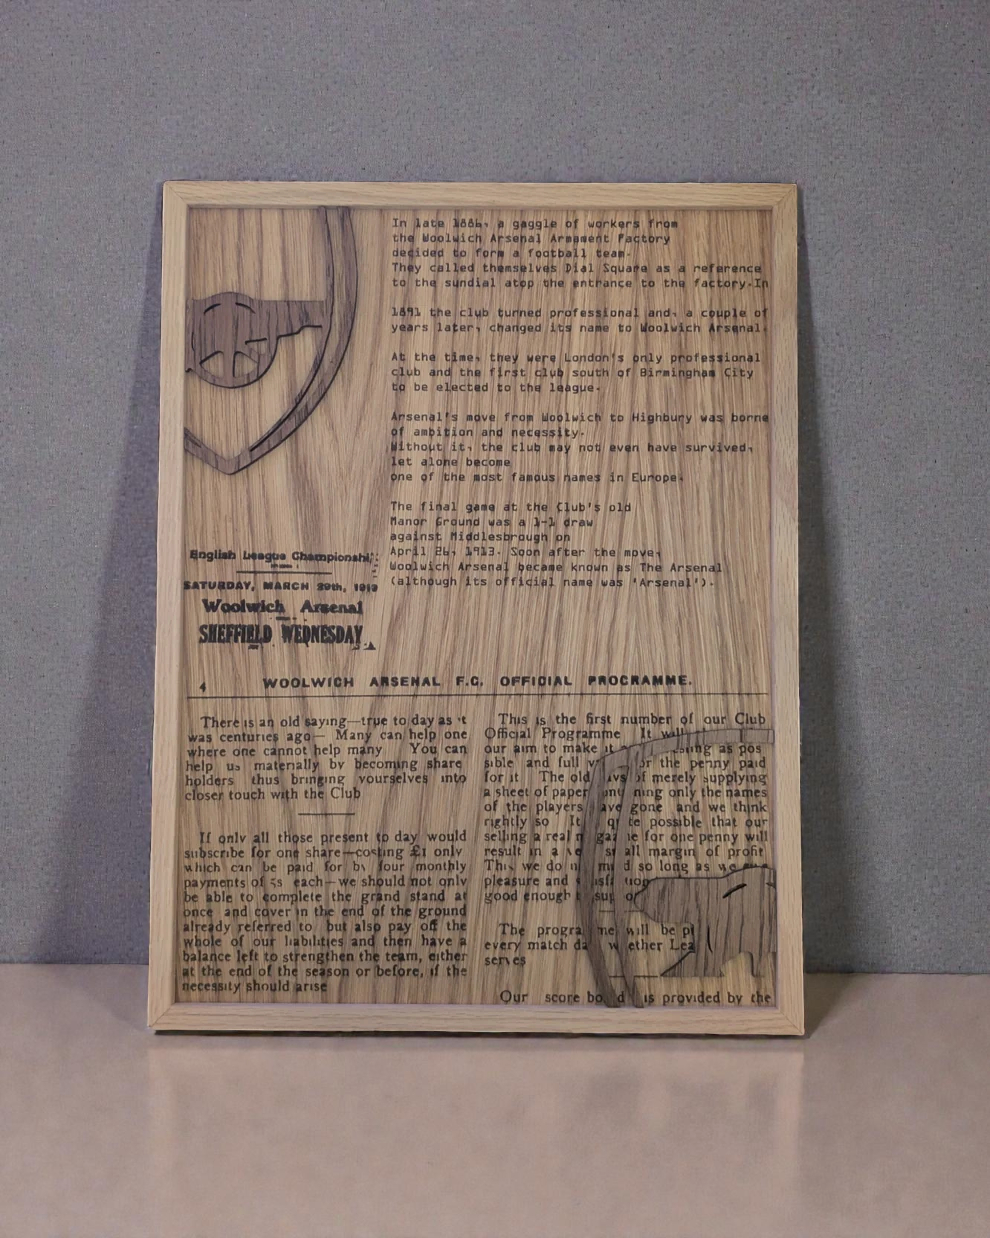 In late 1886, a gaggle of workers from
the Woolwich Arsenal Armament Factory
decided to form a football team.
They called themselves Dial Square as a reference
to the sundial atop the entrance to the factory.In
1891 the club turned professional and, a couple of
years later, changed its name to Woolwich Arsenal.
At the time, they were London's only professional
club and the first club south of Birmingham City
to be elected to the league.
Arsenal's move from Woolwich to Highbury was borne
of ambition and necessity.
Without it, the club may not even have survived,
let alone become
one of the most famous names in Europe.
The final game at the Club's old
Manor Ground was a 1-1 draw
against Middlesbrough on
April 26, 1913. Soon after the move,
Woolwich Arsenal became known as The Arsenal
(although its official name was 'Arsenal').
English League Championshi
SATURDAY, MARCH 29th, 1913
Woolwich Arsenal
SHEFFIELD WEDNESDAY
4 WOOLWICH ARSENAL F.C. OFFICIAL PROGRAMME.
There is an old saying—true to day as t
was centuries ago— Many can help one
where one cannot help many You can
help us materially by becoming share
holders thus bringing yourselves into
closer touch with the Club
If only all those present to day would
subscribe for one share—costing £1 only
which can be paid for by four monthly
payments of 5s each—we should not only
be able to complete the grand stand at
once and cover in the end of the ground
already referred to but also pay off the
whole of our liabilities and then have a
balance left to strengthen the team, either
at the end of the season or before, if the
necessity should arise
This is the first number of our Club
Official Programme It will
our aim to make it as pos
sible and full for the penny paid
for it The old of merely supplying
a sheet of paper only the names
of the players gone and we think
rightly so It possible that our
selling a real for one penny will
result in a small margin of profit
This we do so long as we
pleasure and
good enough
The programme will be
every match day whether Lea
serves
Our score board is provided by the